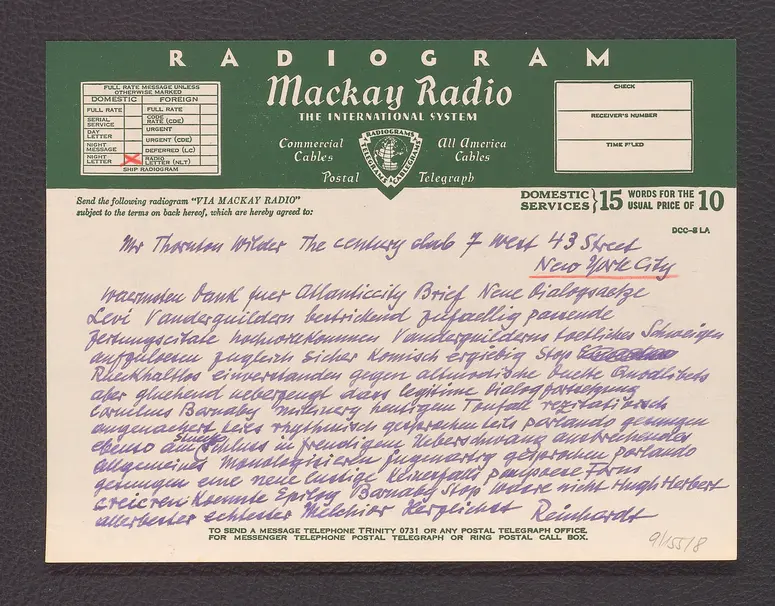 RADIOGRAM
Mackay Radio
THE INTERNATIONAL SYSTEM
Commercial Cables
All America Cables
Postal Telegraph
RADIOGRAMS
TELEGRAMS
CABLEGRAMS
FULL RATE MESSAGE UNLESS
OTHERWISE MARKED
DOMESTIC FOREIGN
FULL RATE FULL RATE
SERIAL SERVICE CODE RATE (CDE)
DAY LETTER URGENT
URGENT (CDE)
NIGHT MESSAGE DEFERRED (LC)
NIGHT LETTER X RADIO LETTER (NLT)
SHIP RADIOGRAM
CHECK
RECEIVER'S NUMBER
TIME FILED
Send the following radiogram "VIA MACKAY RADIO"
subject to the terms on back hereof, which are hereby agreed to:
DOMESTIC SERVICES } 15 WORDS FOR THE USUAL PRICE OF 10
DCC-8 LA
Mr Thornton Wilder The century club 7 West 43 Street
New York City
Waermsten Dank fuer Atlanticcity Brief Neue Dialogsaetze
Levi Vanderguildern bestrickend zufaellig passende
Zeitungscitate hochwillkommen Vanderguilderns toetliches Schweigen
aufzuloesen zugleich sicher komisch ergiebig Stop
Rueckhaltlos einverstanden gegen altmodische Duette Quodlibets
aber gluehend ueberzeugt dass legitime Dialogfortsetzung
Cornelius Barnaby Millinery heutigem Tonfad rezitativisch
angenaehert teils rhythmisch gesprochen teils parlando gesungen
ebenso am Stueck Schluss in freudigem Ueberschwang ausbrechendes
allgemeines Monologisieren fugenartig gesprochen parlando
gesungen eine neue lustige keinerfalls Form
creieren Koennte Epilog Barnaby Stop Waere nicht Hugh Herbert
allerbester Melchior Herzlichst Reinhardt
TO SEND A MESSAGE TELEPHONE TRINITY 0731 OR ANY POSTAL TELEGRAPH OFFICE.
FOR MESSENGER TELEPHONE POSTAL TELEGRAPH OR RING POSTAL CALL BOX.
9/155/8